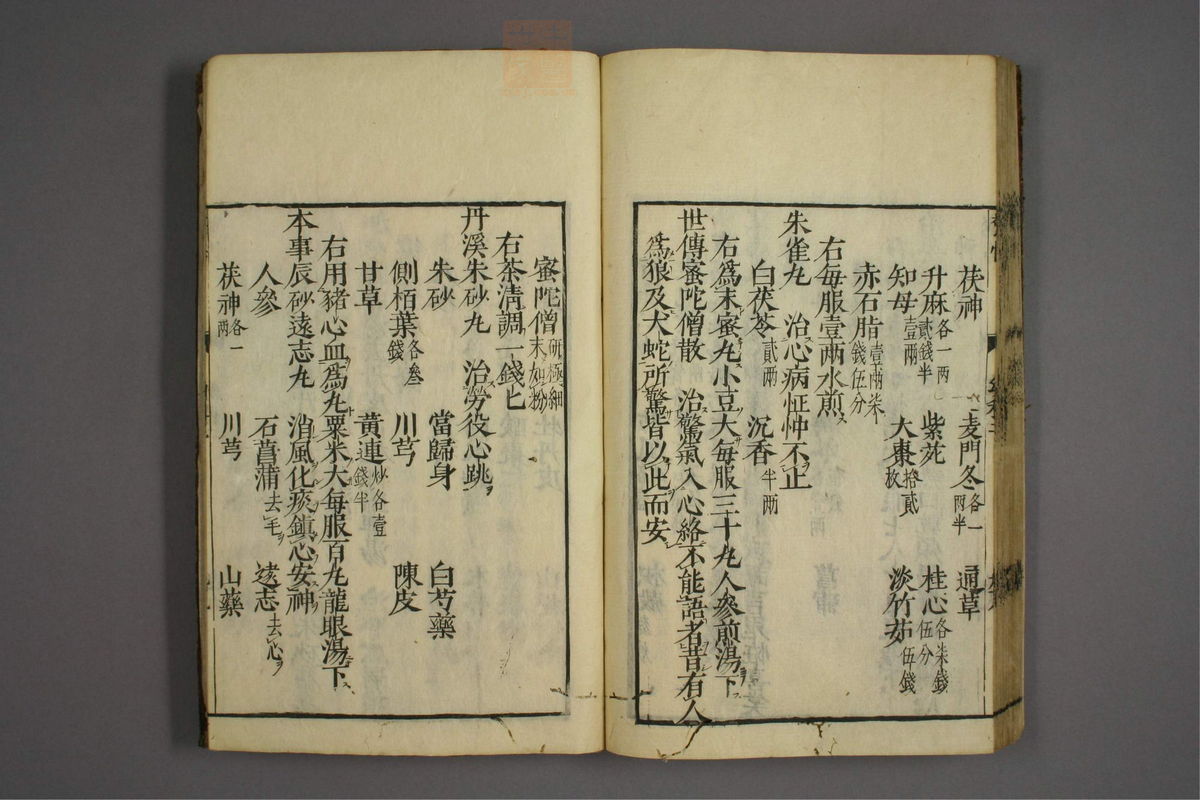 茯神 麦門冬各一兩半 通草
升麻各一兩 紫菀 桂心各柒錢伍分
知母壹兩貳錢半 大棗拾貳枚 淡竹茹伍錢
赤石脂壹兩柒錢伍分
右每服壹兩水煎ス
朱雀丸 治心病怔忡不止
白茯苓貳兩 沉香半兩
右爲末蜜丸小豆大每服三十丸人參煎湯下
世傳蜜陀僧散 治驚氣入心絡不能語者昔有人
爲狼及犬蛇所驚皆以此而安
蜜陀僧研極細末如粉
右茶淸調一錢匕
丹溪朱砂丸 治勞役心跳
朱砂 當歸身 白芍藥
側栢葉各叁錢 川芎 陳皮
甘草 黃連炒各壹錢半
右用豬心血爲丸粟米大每服百丸龍眼湯下
本事辰砂遠志丸 消風化痰鎮心安神
人參 石菖蒲去毛 遠志去心
茯神各一兩 川芎 山藥